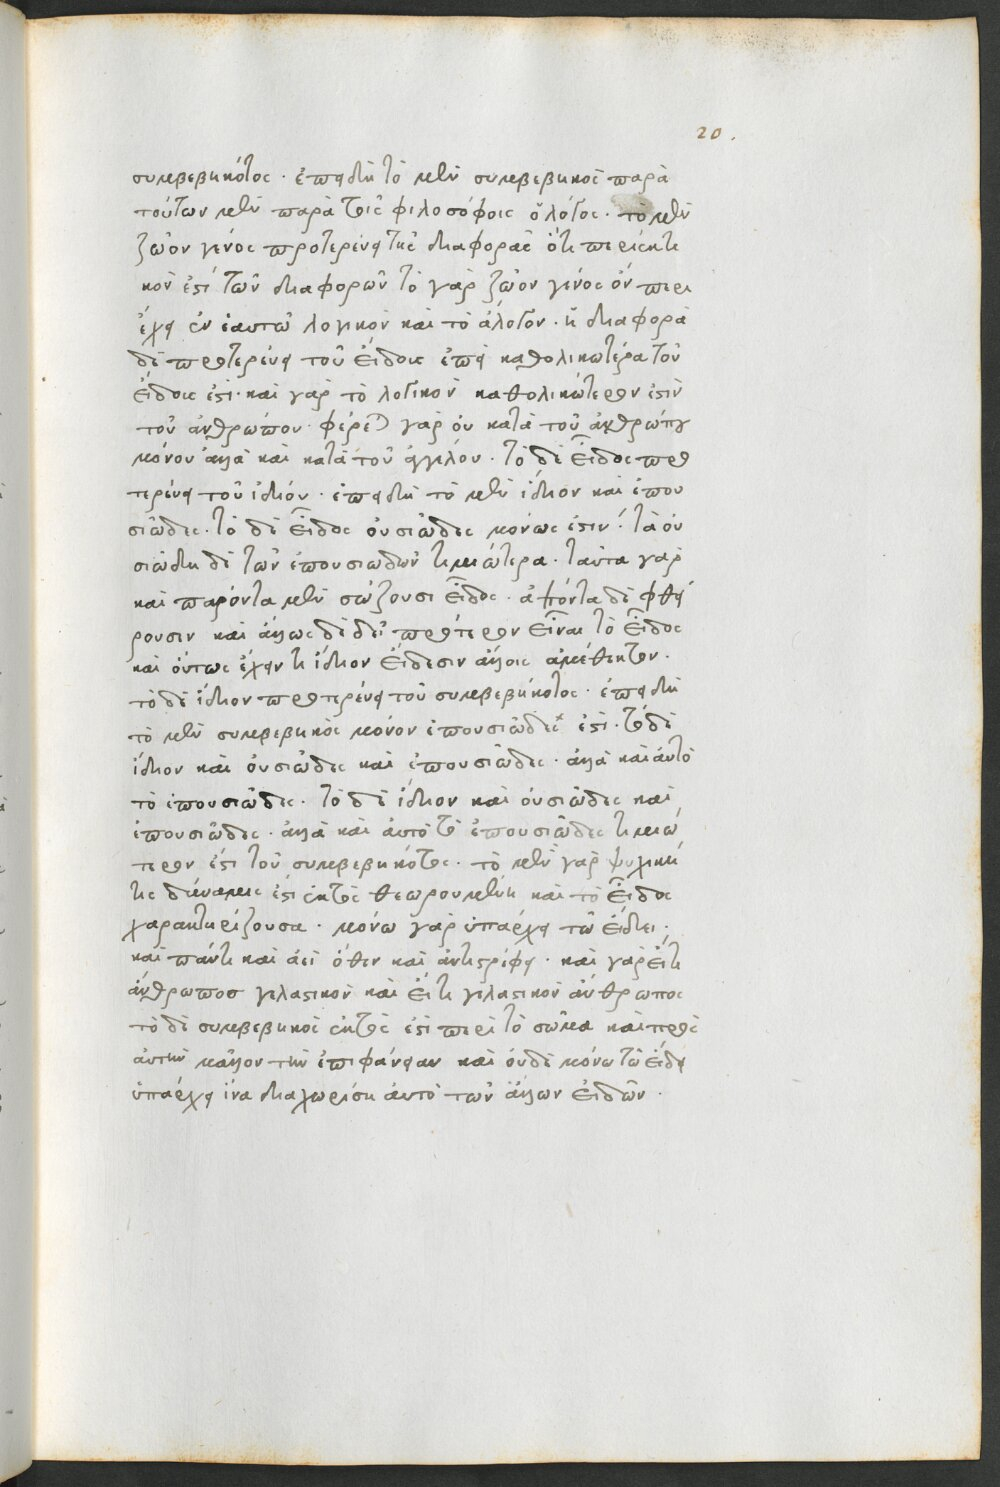 20.
συμβεβηκότος · ἐπειδὴ τὸ μὲν συμβεβηκὸς παρὰ
τούτων μὲν παρὰ τοῖς φιλοσόφοις ὁ λόγος · τὸ μὲν
ζῶον γένος προτερεύει τῆς διαφορᾶς ὅτι περιεκτι
κόν ἐστί τῶν διαφορῶν τὸ γὰρ ζῶον γένος ὂν περι
έχει ἐν ἑαυτῶ λογικὸν καὶ τὸ ἄλογον · ἡ διαφορὰ
δὲ προτερεύει τοῦ εἴδους ἐπεὶ καθολικωτέρα τοῦ
εἴδους ἐστί · καὶ γὰρ τὸ λογικὸν καθολικώτερόν ἐστὶν
τοῦ ἀνθρώπου · φέρεται γὰρ οὐ κατὰ τοῦ ἀνθρώπου
μόνον ἀλλὰ καὶ κατὰ τοῦ ἀγγέλου · τὸ δὲ εἶδος προ
τερεύει τοῦ ἰδίου · ἐπειδὴ τὸ μὲν ἴδιον καὶ ἐπου
σιῶδες · τὸ δὲ εἶδος οὐσιῶδες μόνως ἐστίν : τὰ οὐ
σιώδη δὲ τῶν ἐπουσιωδῶν τιμιώτερα · ταῦτα γὰρ
καὶ παρόντα μὲν σώζουσι εἶδος · ἀπόντα δὲ φθεί
ρουσιν καὶ ἄλλως δὲ δεῖ πρότερον εἶναι τὸ εἶδος
καὶ οὕτως ἔχειν τι ἴδιον εἴδεσιν ἄλλοις ἀμέθεκτον ·
τὸ δὲ ἴδιον προτερεύει τοῦ συμβεβηκότος · ἐπειδὴ
τὸ μὲν συμβεβηκὸς μόνον ἐπουσιῶδες ἐστί · τὸ δὲ
ἴδιον καὶ οὐσιῶδες καὶ ἐπουσιῶδες · ἀλλὰ καὶ αὐτὸ
τὸ ἐπουσιῶδες · τὸ δὲ ἴδιον καὶ οὐσιῶδες καὶ
ἐπουσιῶδες · ἀλλὰ καὶ αὐτὸ τὸ ἐπουσιῶδες τιμιώ
τερον ἐστὶ τοῦ συμβεβηκότος · τὸ μὲν γὰρ ψυχικὴ
τις δύναμις ἐστὶ ἐκτὸς θεωρουμένη καὶ τὸ εἶδος
χαρακτηρίζουσα · μόνω γὰρ ὑπάρχει τῶ εἴδει ·
καὶ παντὶ καὶ ἀεὶ ὅθεν καὶ ἀντιστρέφει · καὶ γὰρ εἴ τι
ἄνθρωποσ γελαστικὸν καὶ εἴ τι γελαστικὸν ἄνθρωπος
τὸ δὲ συμβεβηκὸς ἐκτὸς ἐστὶ περὶ τὸ σῶμα καὶ πρὸς
αὐτὴν μᾶλλον τὴν ἐπιφάνειαν καὶ οὐδὲ μόνω τῶ εἴδει
ὑπάρχει ἵνα διαχωρίση αὐτὸ τῶν ἄλλων εἰδῶν ·